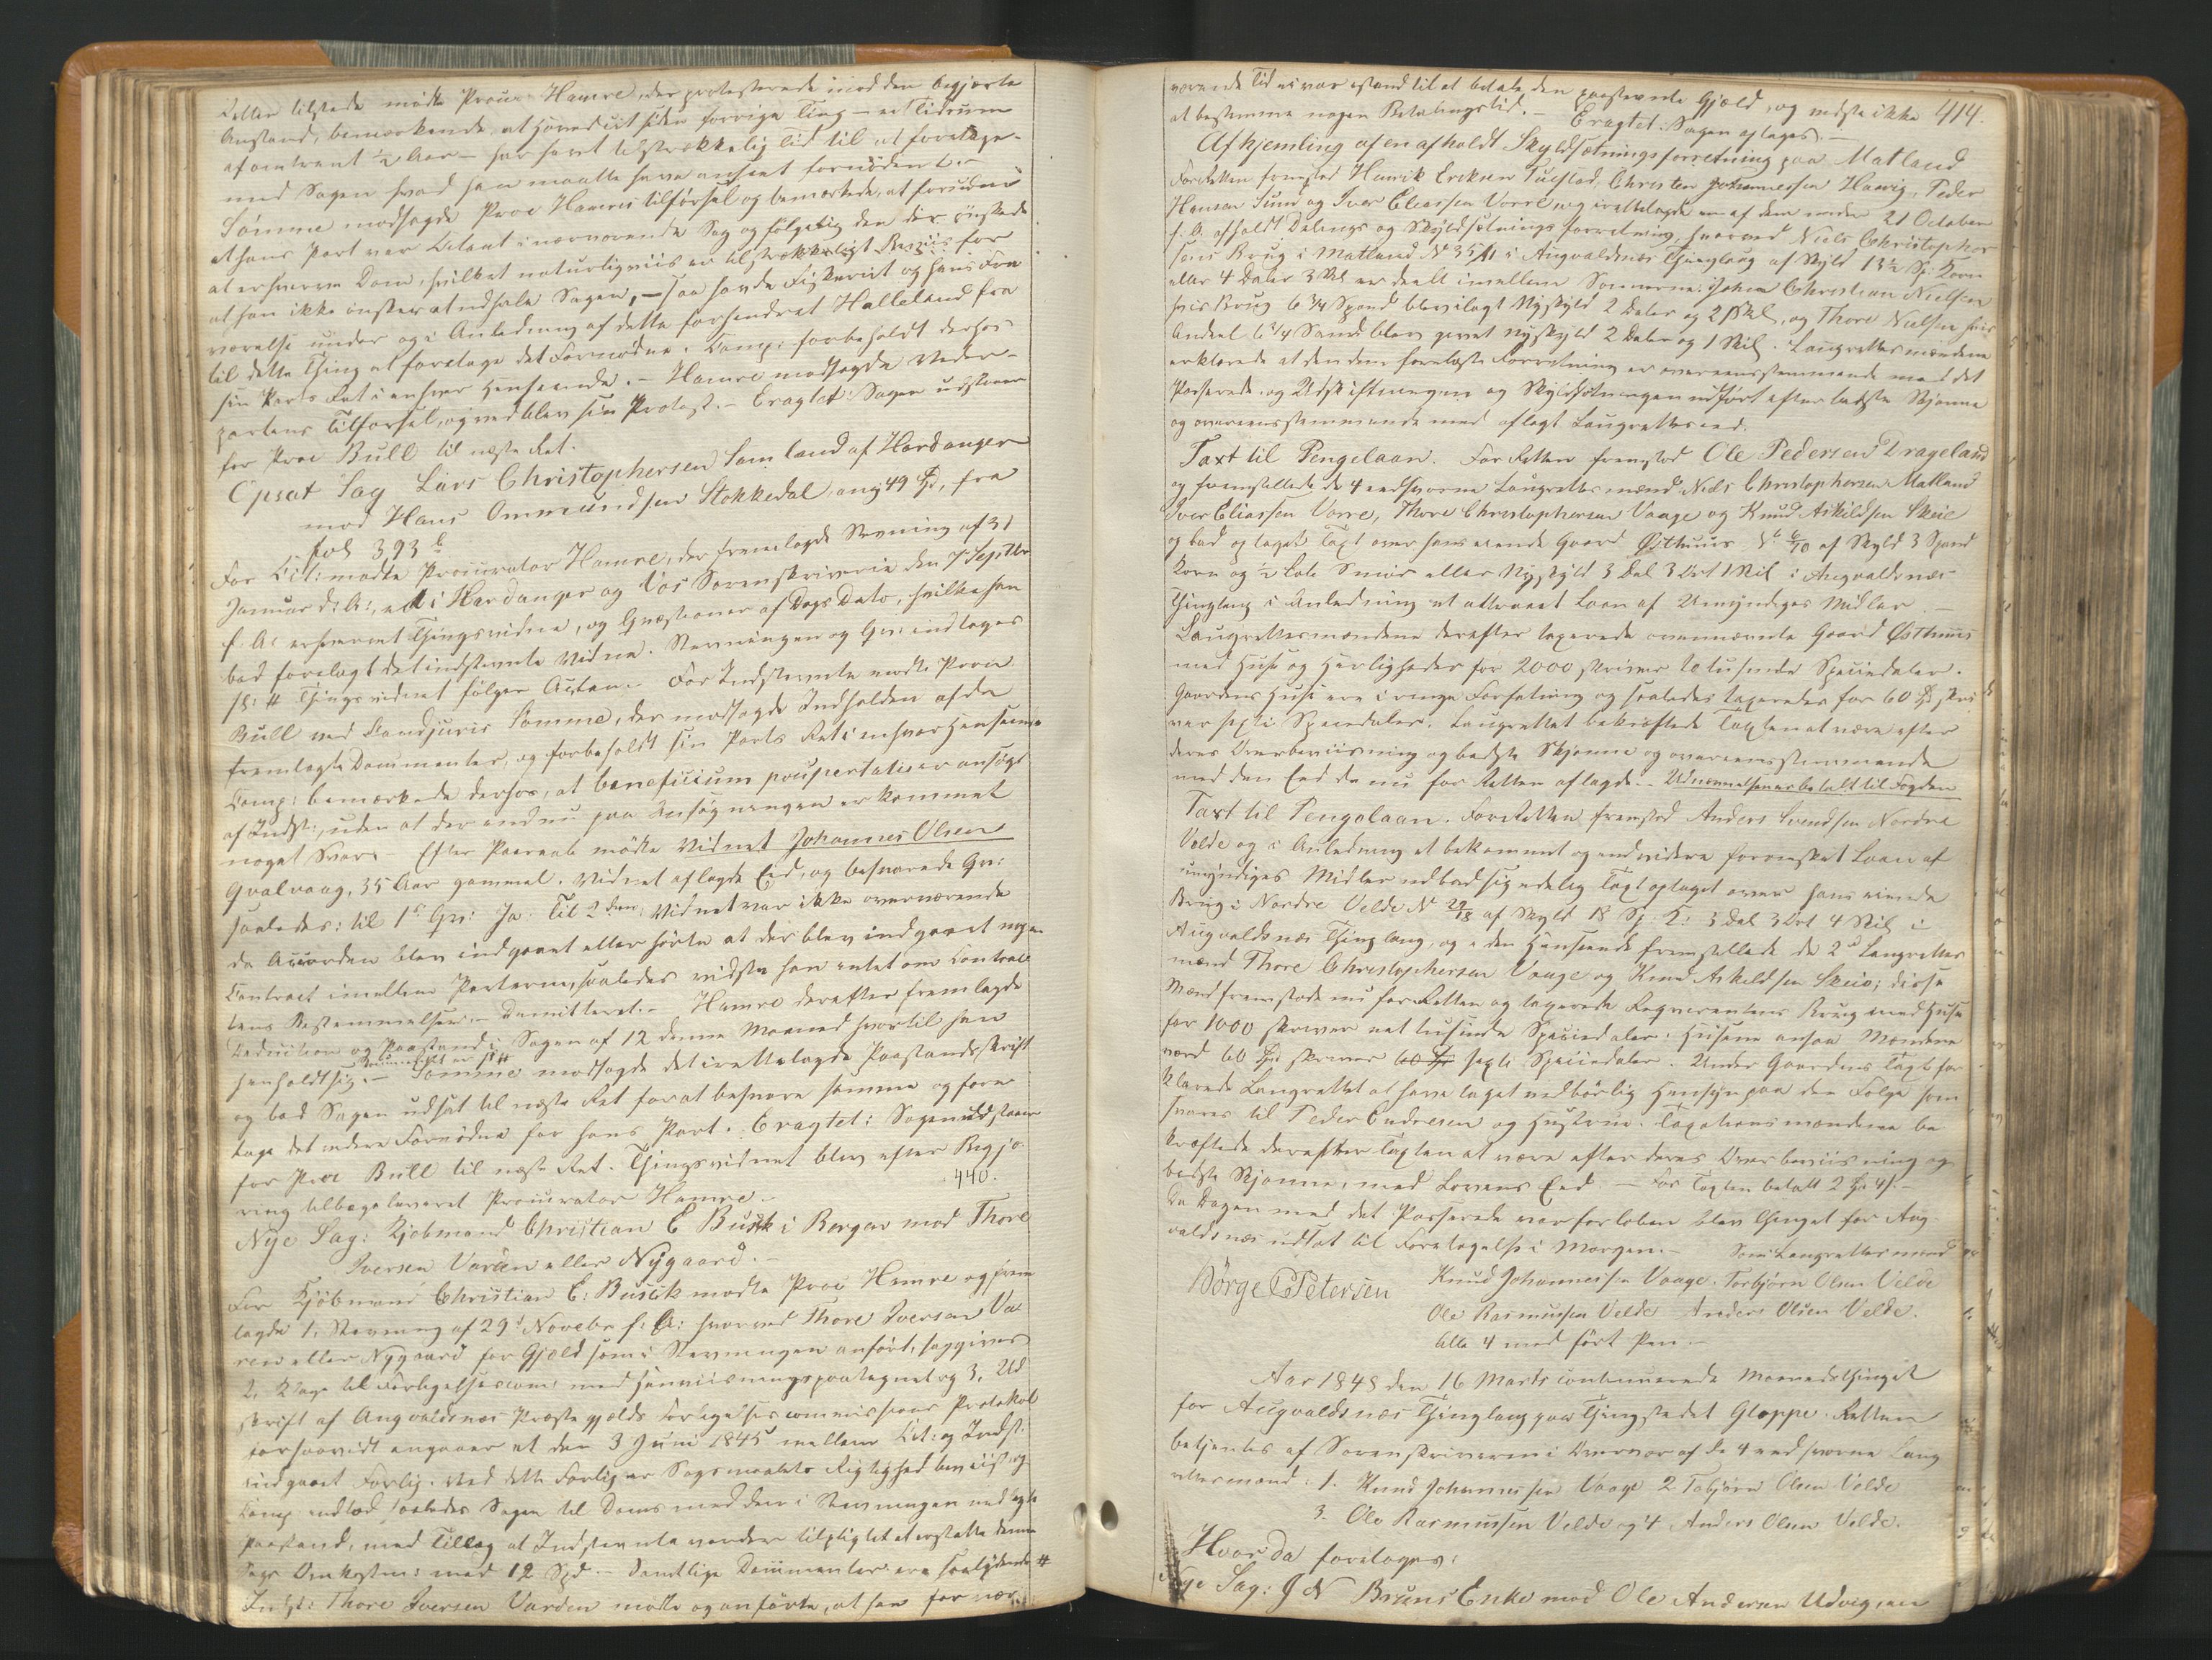 Retten tilstede mødte Procr Hamre, der protesterede imod den begjærte
Anstand, bemærkende, at Hovedcit siden forrige Ting – et Tidsrum
af omtrent ½ Aar – har havt tilstrækkelig Tid til at foretage
med Sagen hvad han maatte have anseet fornødent. –
Sømme modsagde Procr Hamres Tilførsel og bemærkede, at foruden
at hans Part var Citant i nærværende Sag og følgelig den der ønskede
at erhverve Dom, hvilket naturligviis er tilstrækkeligt Beviis for
at han ikke ønsker at udhale Sagen, – saa havde Fiskeriet og hans Fra
værelse under og i Anledning af dette forhindret Halleland fra
til dette Thing at foretage det Fornødne. Comp: forbeholdt derhos
sin Parts Ret i enhver Henseende. – Hamre modsagde Veder-
partens Tilførsel, og vedblev sin Protest. – Eragtet: Sagen udstaaer
for Procr Bull til næste Ret.
Opsat Sag Lars Christophersen Samland af Hardanger
mod Hans Ommundsen Stokkedal, ang 49 Spd, fra
fol 393 b
For Cit: mødte Procurator Hamre, der fremlagde Stevning af 31
Januar d: A:, et i Hardanger og Vos Sorenskriverie den 7 Septbr
f. A. erhvervet Thingsvidne, og Qvæstioner af Dags Dato, hvilke han
bad forelagt det indstevnte Vidne. Stevningen og Qv: indtages
sp: # Thingsvidnet følger Acten. – For Indstevnte mødte Procr
Bull ved Candjuris Sømme, der modsagde Indholden af de
fremlagte Documenter, og forbeholdt sin Parts Ret i enhver Henseende
Comp: bemærkede derhos, at beneficium paupertatis er ansøgt
af Indst:, uden at der endnu paa Ansøgningen er kommet
noget Svar. – Efter Paaraab mødte Vidnet Johannes Olsen
Qvalvaag, 35 Aar gammel. Vidnet aflagde Eed, og besvarede Qv:
saaledes: til 1ste Qv: Ja. Til 2den: Vidnet var ikke overværende
da Accorden blev indgaaet eller hørte at der blev indgaaet nogen
Contract imellem Parterne, saaledes vidste han intet om Contrac
tens Bestemmelser. – Demitteret. – Hamre derefter fremlagde
Deduction og Paastand i Sagen af 12 denne Maaned hvortil han
henholdt sig. – Sømme modsagde det irettelagde Paastandsskrift
og bad Sagen udsat til næste Ret for at besvare samme og fore
tage det videre Fornødne for hans Part. Eragtet: Sagen udstaaer
for Procr Bull til næste Ret. Thingsvidnet blev efter Begjæ
ring tilbageleveret Procurator Hamre. –
440.
Nye Sag: Kjøbmand Christian E Busck i Bergen mod Thore
Iversen Varden eller Nygaard. –
For Kjøbmand Christian E. Busck mødte Procr Hamre og frem
lagde 1, Stevning af 29d Novebr f. A: hvorved Thore Iversen Va
ren eller Nygaard for Gjæld som i Stevningen anført, saggives
2, Klage til Forligelsescom: med Henviisningspaategnet og 3, Ud
skrift af Augvaldsnæs Præstegjelds Forligelsescommissions Protokol
forsaavidt angaaer et den 3 Juni 1845 mellem Cit: og Indst:
indgaaet Forlig. Ved dette Forlig er Sagsmaalets Rigtighed beviist og
Comp indlod saaledes Sagen til Doms med den i Stevningen nedlagte
Paastand, med Tillæg at Indstevnte vorder tilpligtet at erstatte denne
Sags Omkostn: med 12 Spd. – Samtlige Documenter ere saalydende #
Indst: Thore Iversen Varden mødte og anførte, at han for nær-
værende Tid ei var istand til at betale den paastevnte Gjæld, og vidste ikke 414.
at bestemme nogen Betalingstid. – Eragtet: Sagen optages. –
Afhjemling af en afholdt Skyldsætningsforretning paa Matland
For Retten fremstod Henrik Eriksen Tuestad, Christen Johannessen Hawig, Peder
Hansen Sund og Iver Eliassen Vorre og irettelagde en af dem under 21 October
f. A. afholdt Delings og Skyldsætningsforretning, hvorved Niels Christopher
sens Brug i Matland N 35 i Augvaldsnæs Thinglaug af Skyld 13½ Sp: Korn
eller 4 Daler 3 Skl er deelt imellem Sønnerne: Johan Christian Nielsen
hvis Brug 6¾ Spand blev ilagt Nyskyld 2 Daler og 2 Skl, og Thore Nielsen hvis
Andeel 6¾ Spand blev givet Nyskyld 2 Daler og 1 Skil. Laugrettesmændene
erklærede at den dem forelæste Forretning er overeensstemmende med det
Passerede, og Udskiftningen og Skyldsætningen udført efter bedste Skjønne
og overeensstemmende med aflagt Laugrettesed.
Taxt til Pengelaan. For Retten fremstod Ole Pedersen Drageland
og fremstillede de 4 eedsvorne Laugrettesmænd Niels Christophersen Matland
Iver Eliassen Vorre, Thore Christophersen Vaage og Knud Askildsen Skeie
og bad optaget Taxt over hans eiende Gaard Østhuus N 6/10 af Skyld 3 Spand
Korn og ½ Løb Smør eller Nyskyld 3 Dal 3 Ort 1 Skil i Augvaldsnæs
Thinglaug i Anledning et attraaet Laan af Umyndiges Midler. –
Laugrettesmændene derefter taxerede ovennævnte Gaard Østhuus
med Huse og Herligheder for 2000 skriver to tusinde Speciedaler.
Gaardens Huse ere i ringe Forfatning og saaledes taxeredes for 60 Spd skri
ver sexti Speciedaler. Laugrettet bekræftede Taxten at være efter
deres Overbeviisning og bedste Skjønne og overeensstemmende
med den Eed de nu for Retten aflagde. – Udnævnelsen er betalt til Fogden
Taxt til Pengelaan. For Retten fremstod Anders Svendsen Nordre
Velde og i Anledning et bekommet og endvidere forønsket Laan af
umyndiges Midler udbad sig edelig Taxt optaget over hans eiende
Brug i Nordre Velde N 29/18 af Skyld 18 Sp. K: 3 Dal 3 Ort 4 Skil i
Augvaldsnæs Thinglaug, og i den Henseende fremstillede de 2d Laugrettes
mænd Thore Christophersen Vaage og Knud Askeldsen Skeie; disse
Mænd fremstode nu for Retten og taxerede Reqvirentens Brug med Huse
for 1000 skriver eet tusinde Speciedaler; Husene ansaa Mændene
værd 60 Spd skriver sexti Speciedaler. Under Gaardens Taxt for
klarede Laugrettet at have taget nødbørlig Hensyn paa den Følge som
svares til Peder Endresen og Hustrue. Taxationsmændene be
kræftede derefter Taxten at være efter deres Overbeviisning og
bedste Skjønne, med Lovens Eed. – For Taxten betalt 2 Spd 4 s. –
Da Dagen med det Passerede var forløben blev Thinget for Aug
valdsnæs udsat til Foretagelse i Morgen. – Som Laugrettesmænd
Børge C Petersen Knud Johannessen Vaage. Torbjørn Olsen Velde
Ole Rasmussen Velde Anders Olsen Velde.
Alle 4 med ført Pen. –
Aar 1848 den 16 Marts continuerede Maanedsthinget
for Augvaldsnæs Thinglaug paa Thingstedet Gloppe. Retten
betjentes af Sorenskriveren i Overvær af de 4 eedsvorne Laug
rettesmænd: 1. Knud Johannessen Vaage 2 Tobjørn Olsen Velde
3. Ole Rasmussen Velde og 4 Anders Olsen Velde.
Hvor da foretoges:
Nye Sag: J N Bruns Enke mod Ole Andersen Udvig, an